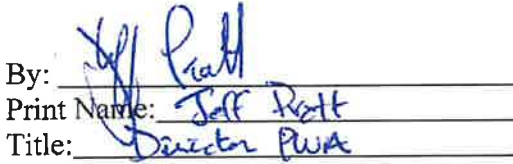 By: Jeff Pratt
Print Name: Jeff Pratt
Title: Director PWA